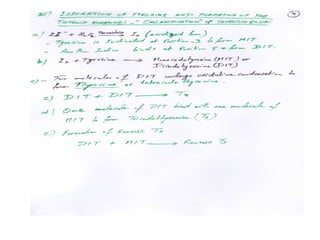 III° IODINATION OF TYROSINE AND FORMATION OF THE
THYROID HORMONES - "ORGANIFICATION OF THYROGLOBULIN
4
a) 2I⁻ + H₂O₂ → I₂ (oxidized form)
- Tyrosine is Iodinated at Position-3 to form MIT
- Another Iodine binds at Position 5 to form DIT.
b) I₂ + Tyrosine → Monoiodotyrosine (MIT) or
Diiodotyrosine (DIT)
c) - Two molecules of DIT undergo oxidative condensation to
form Thyroxine or tetraiodothyronine.
c) DIT + DIT → T₄
d) One molecule of DIT bind with one molecule of
MIT to form Triiodothyronine (T₃)
e) Formation of Reverse T₃
DIT + MIT → Reverse T₃